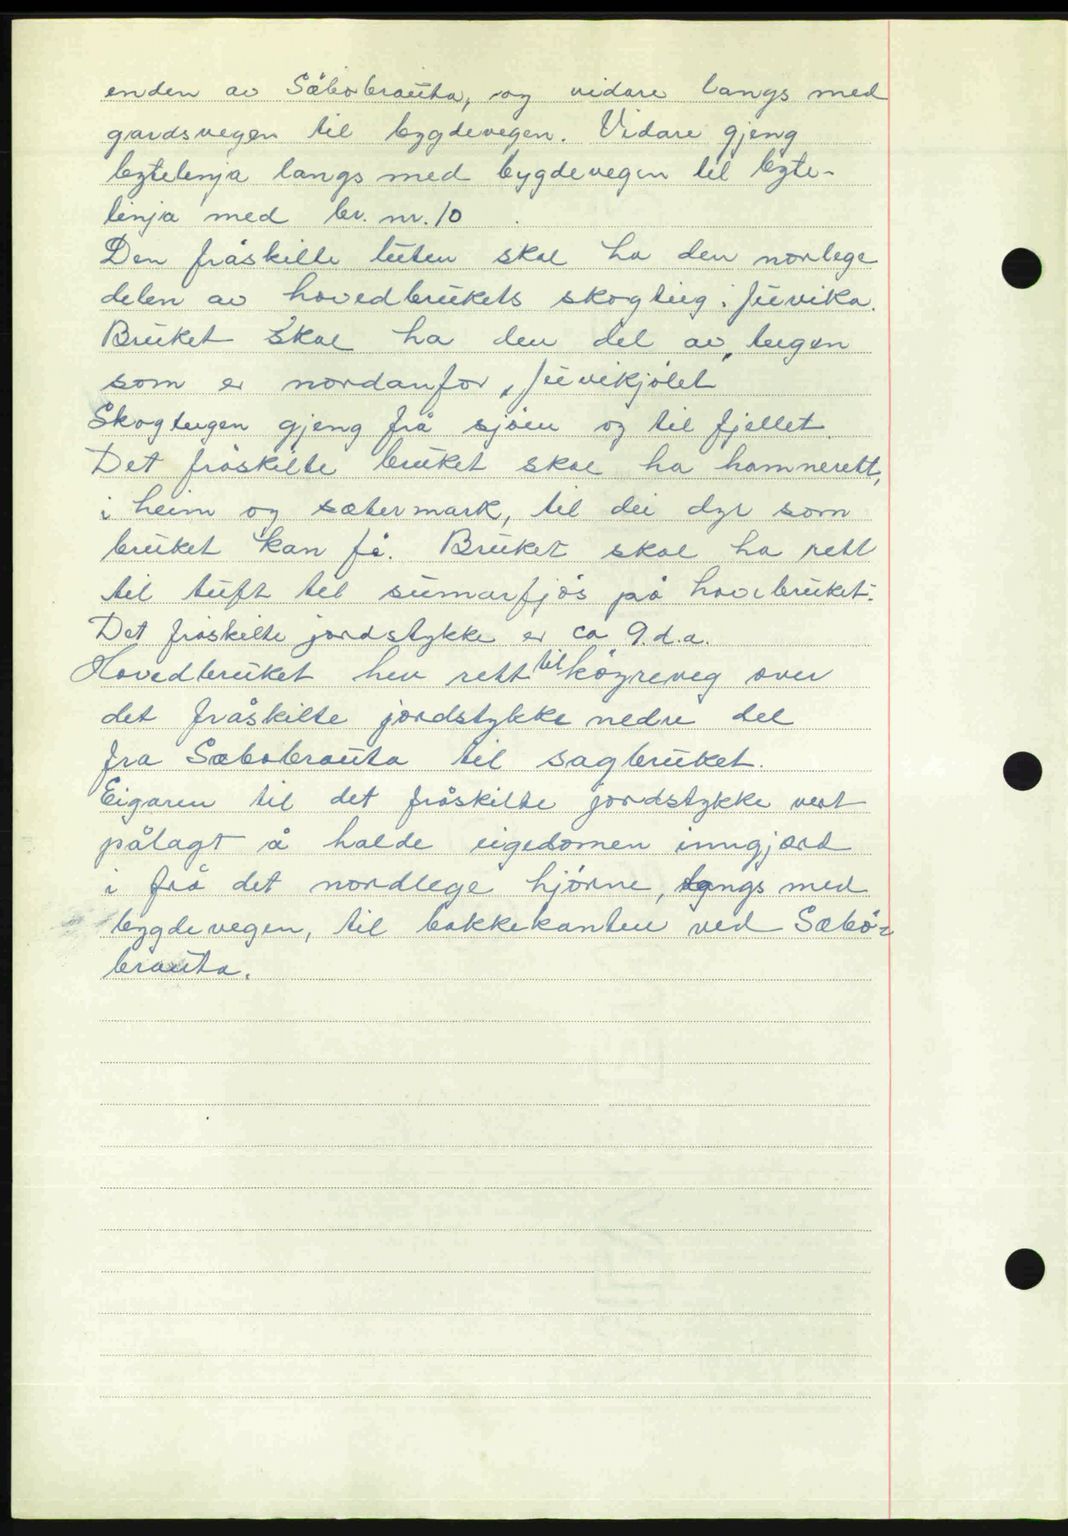 enden av Säbobrauta, og vidare langs med
gardsvegen til bygdevegen. Vidare gjeng
bytelinja langs med bygdevegen til byte-
linja med br. nr. 10 .
Den fråskilte luten skal ha den norlege
delen av hovedbrukets skogteig i Juvika.
Bruket skal ha den del av teigen
som er nordanfor „Juvikjølet"
Skogteigen gjeng frå sjøen og til fjellet.
Det fråskilte bruket skal ha hamnerett,
i heim og sætermark, til dei dyr som
bruket kan fø. Bruket skal ha rett
til tuft til sumarfjøs på hovedbruket.
Det fråskilte jordstykke er ca 9. d.a.
Hovedbruket hev rett til køyreveg over
det fråskilte jordstykke nedre del
fra Sæbobrauta til sagbruket.
Eigaren til det fråskilte jordstykke vert
pålagt å halde eigedomen inngjærd
i frå det nordlege hjørne, langs med
bygdevegen, til bakkekanten ved Sæbø-
brauta.